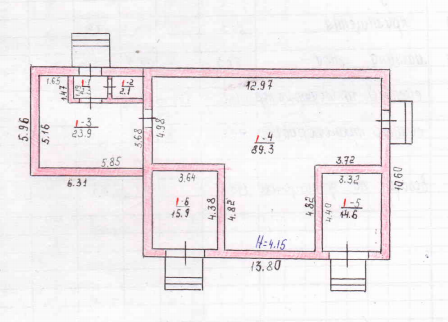 1.65
1-2
2.1
1.47
12.97
5.96
5.16
1-3
23.9
3.68
4.98
1-4
89.3
5.85
3.72
6.31
3.64
3.32
10.60
1-6
15.9
4.38
4.82
4.82
4.40
1-5
14.6
H=4.15
13.80